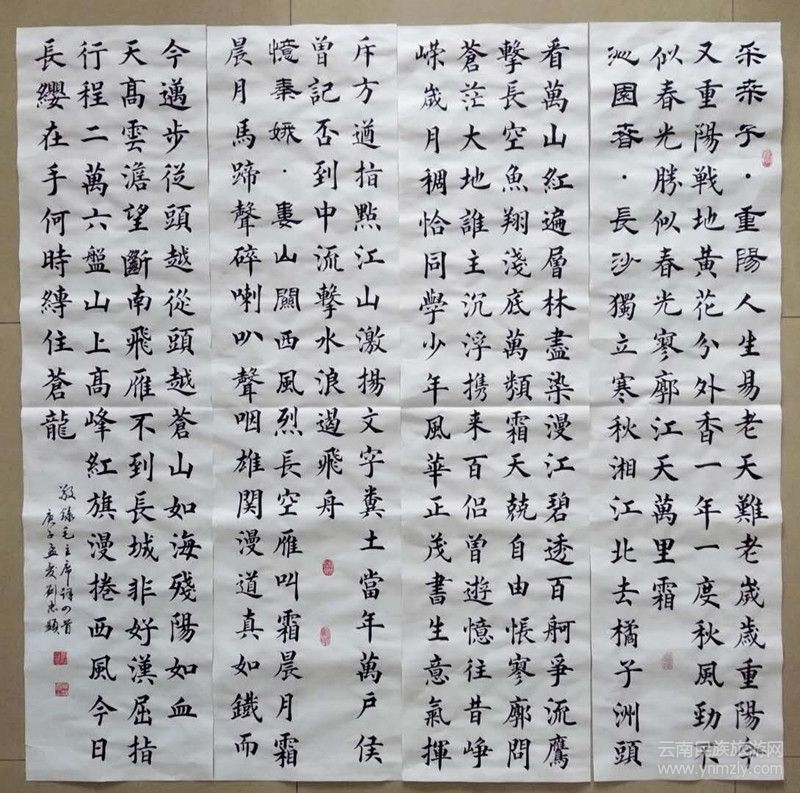 采桑子·重陽人生易老天難老歲歲重陽今
又重陽戦地黃花分外香一年一度秋風勁不
似春光勝似春光寥廓江天萬里霜
沁園春·長沙獨立寒秋湘江北去橘子洲頭
看萬山紅遍層林盡染漫江碧透百舸爭流鷹
擊長空魚翔淺底萬類霜天競自由悵寥廓問
蒼茫大地誰主沉浮携来百侶曾遊憶往昔崢
嶸歲月稠恰同學少年風華正茂書生意氣揮
斥方遒指點江山激揚文字糞土當年萬戶侯
曾記否到中流擊水浪遏飛舟
憶秦娥·婁山關西風烈長空雁叫霜晨月霜
晨月馬蹄聲碎喇叭聲咽雄関漫道真如鐵而
今邁步從頭越從頭越蒼山如海殘陽如血
天高雲澹望斷南飛雁不到長城非好漢屈指
行程二萬六盤山上高峰紅旗漫捲西風今日
長纓在手何時縛住蒼龍
敬錄毛主席詞四首
庚子孟夏劉忠
云南民族旅游网
www.ynmzly.com